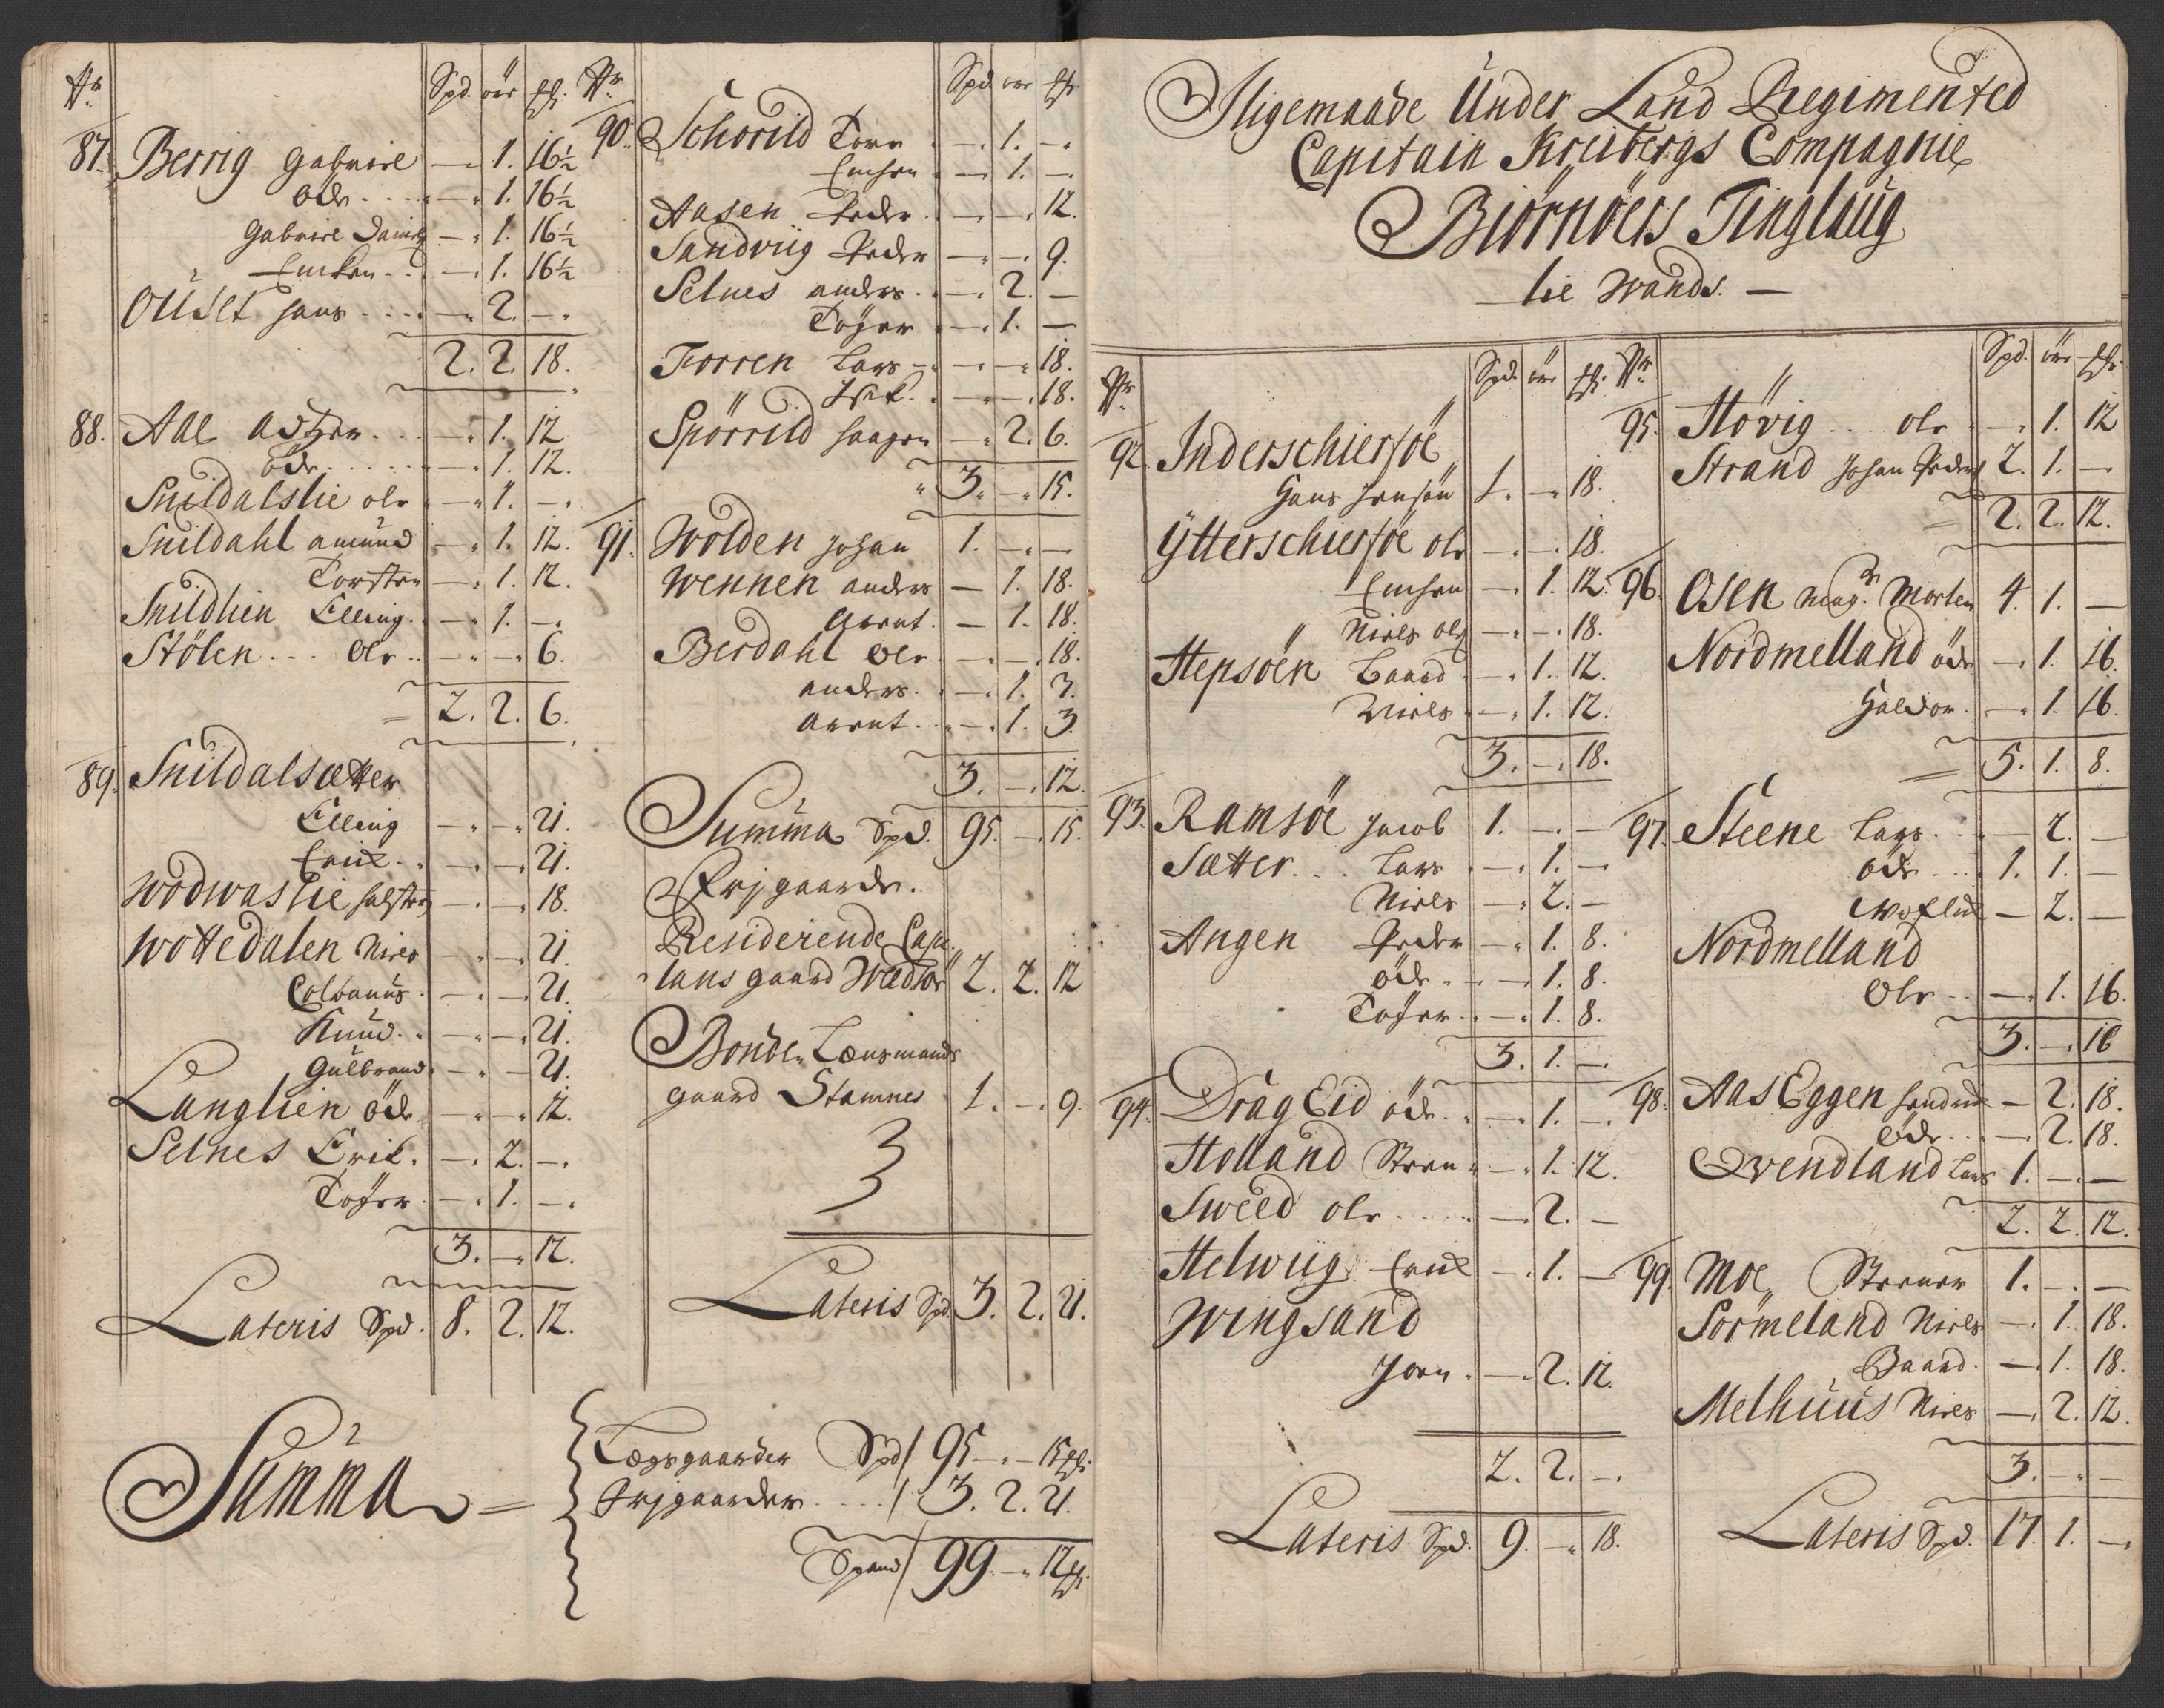 Nr Spd. ör ßl.
87. Berrig Gabriel — 1. 16½
öde .... — 1. 16½
Gabriel — 1. 16½
— 1. 16½
Oüset hans .... — 2. —
2. 2. 18.
88. Aae ... — 1. 12
öde ..... — 1. 12.
Snildalslie ole — 1. —
Snildahl amünd — 1. 12.
Torsten — 1. 12.
Snildlien Elling — 1. —
Stölen ... ole .. — — 6.
2. 2. 6.
89. Snildalsætter
Elling — — 21.
Erich — — 21.
Wodwaslie — — 18.
Wottedalen Niels — — 21.
Colbanüs — — 21.
Knüd .. — — 21.
Gülbrand — — 21.
Langlien öde — — 12.
Selnes Erik. — 2. —
Töger — 1. —
3. — 12.
Lateris Spd. 8. 2. 12.
Nr Spd. ör ßl.
90. Schorild Tore — 1. —
— 1. —
Aasen Peder — — 12.
Sandviig Peder — — 9.
Selnes anders — 2. —
Töger — 1. —
Forren Lars — — 18.
— — 18.
Spörrild haagen — 2. 6.
3. — 15.
91. Wolden Johan 1. — —
Wennen anders — 1. 18.
Arent. — 1. 18.
Berdahl ole — — 18.
anders. — 1. 3.
Arent. — 1. 3.
3. — 12.
Summa Spd. 95. — 15.
Frjgaarde.
Residerende Cape
lans gaard Wedtör 2. 2. 12
Bonde Lensmands
gaard Stamnes 1. — 9.
3
Lateris Spd. 3. 2. 21.
Summa =
Lægsgaarder Spd/ 95 — 15 ßl.
Frjgaarder .... / 3. 2. 21.
Spand/ 99. — 12 ßl.
Iligemaade Under Land Regimented
Capitain Kreibergs Compagnie
Biörnöers Tinglaüg
lie Wands. —
Nr Spd. ör ßl.
92. Inderschierföe
Hans Jensön 1. — 18.
Ytterschierföe ole — — 18.
— 1. 12.
Niels ols — — 18.
Hepsöen Baard — 1. 12.
Niels — 1. 12.
3. — 18.
93. Ramsöe Jacob 1. — —
Sætter ... Lars — 1. —
Niels — 2. —
Angen Peder — 1. 8.
öde .. — 1. 8.
Töger — 1. 8.
3. 1. —
94. Drag Eid öde — 1. —
Holland Steen — 1. 12.
Sweed ole .... — 2. —
Helwiig Erich — 1. —
Wingsand
Joen. — 2. 12.
2. 2. —
Lateris Spd. 9. — 18.
Nr Spd. ör ßl.
95. Hövig ... ole — 1. 12
Strand Johan Peders 2. 1. —
2. 2. 12.
96. Osen mag. Morten 4. 1. —
Nordmelland öde — 1. 16.
Haldor. — 1. 16.
5. 1. 8.
97. Steene Lars. — 2. —
öde 1. 1. —
— 2. —
Nordmelland
Ole — 1. 16.
3. — 16
98. Aas Eggen — 2. 18.
öde — 2. 18.
Qvendland Lars 1. — —
2. 2. 12.
99. Moe Steener 1. — —
Sörmeland Niels — 1. 18.
Baard. — 1. 18.
Melhuus Niels — 2. 12.
3. — —
Lateris Spd. 17. 1. —